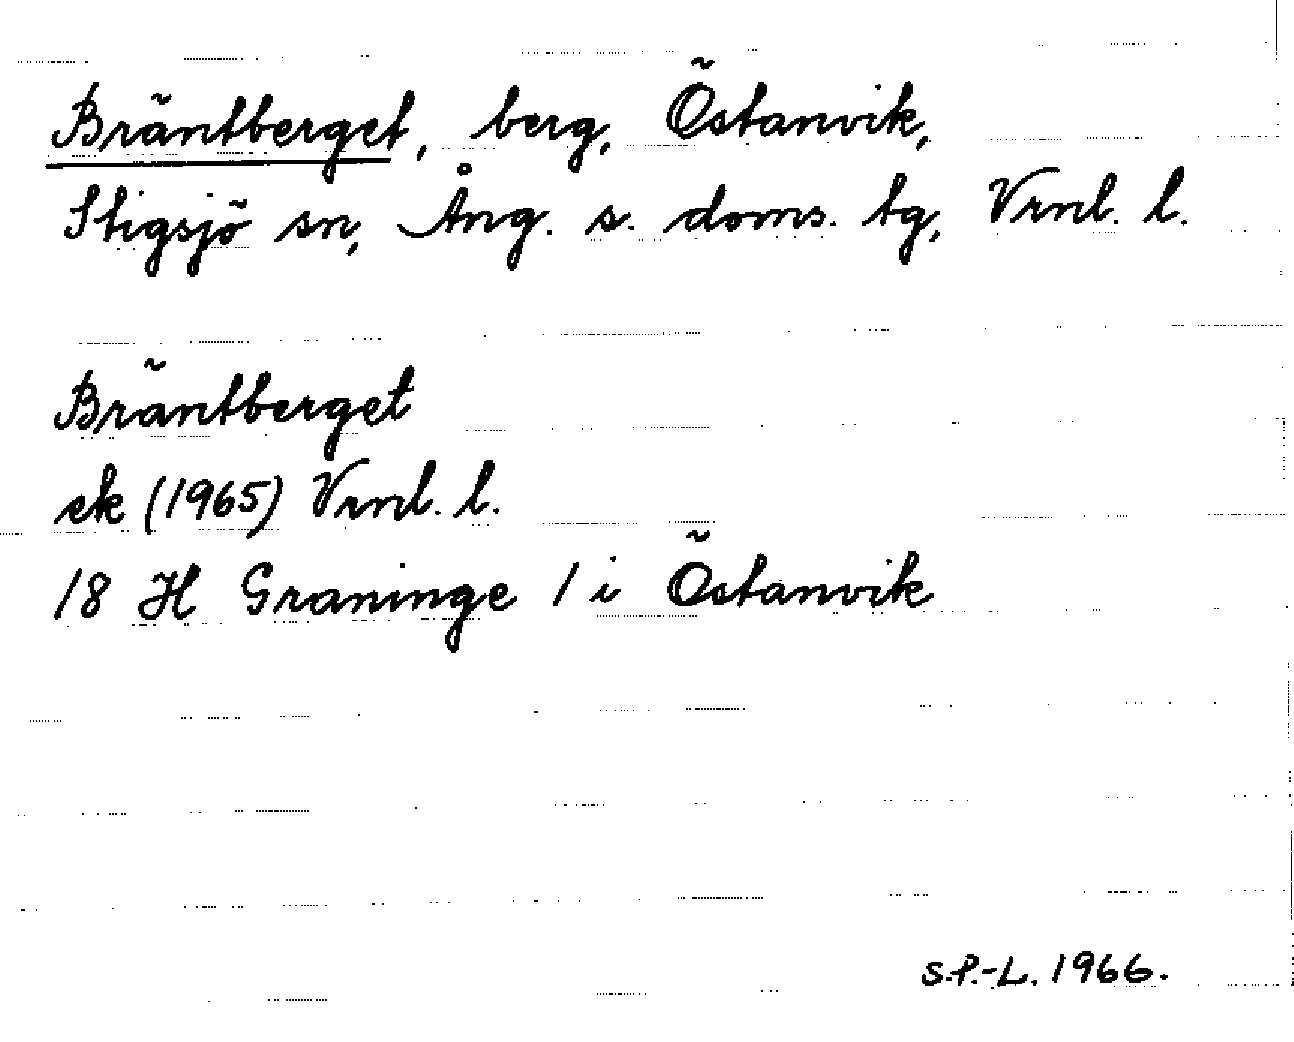 Bräntberget, berg, Östanvik,
Stigsjö sn, Ång. s. doms. tg, Vrnl. l.
Bräntberget
ek (1965) Vrnl. l.
18 H Graninge 1 i Östanvik
S.P.-L. 1966.